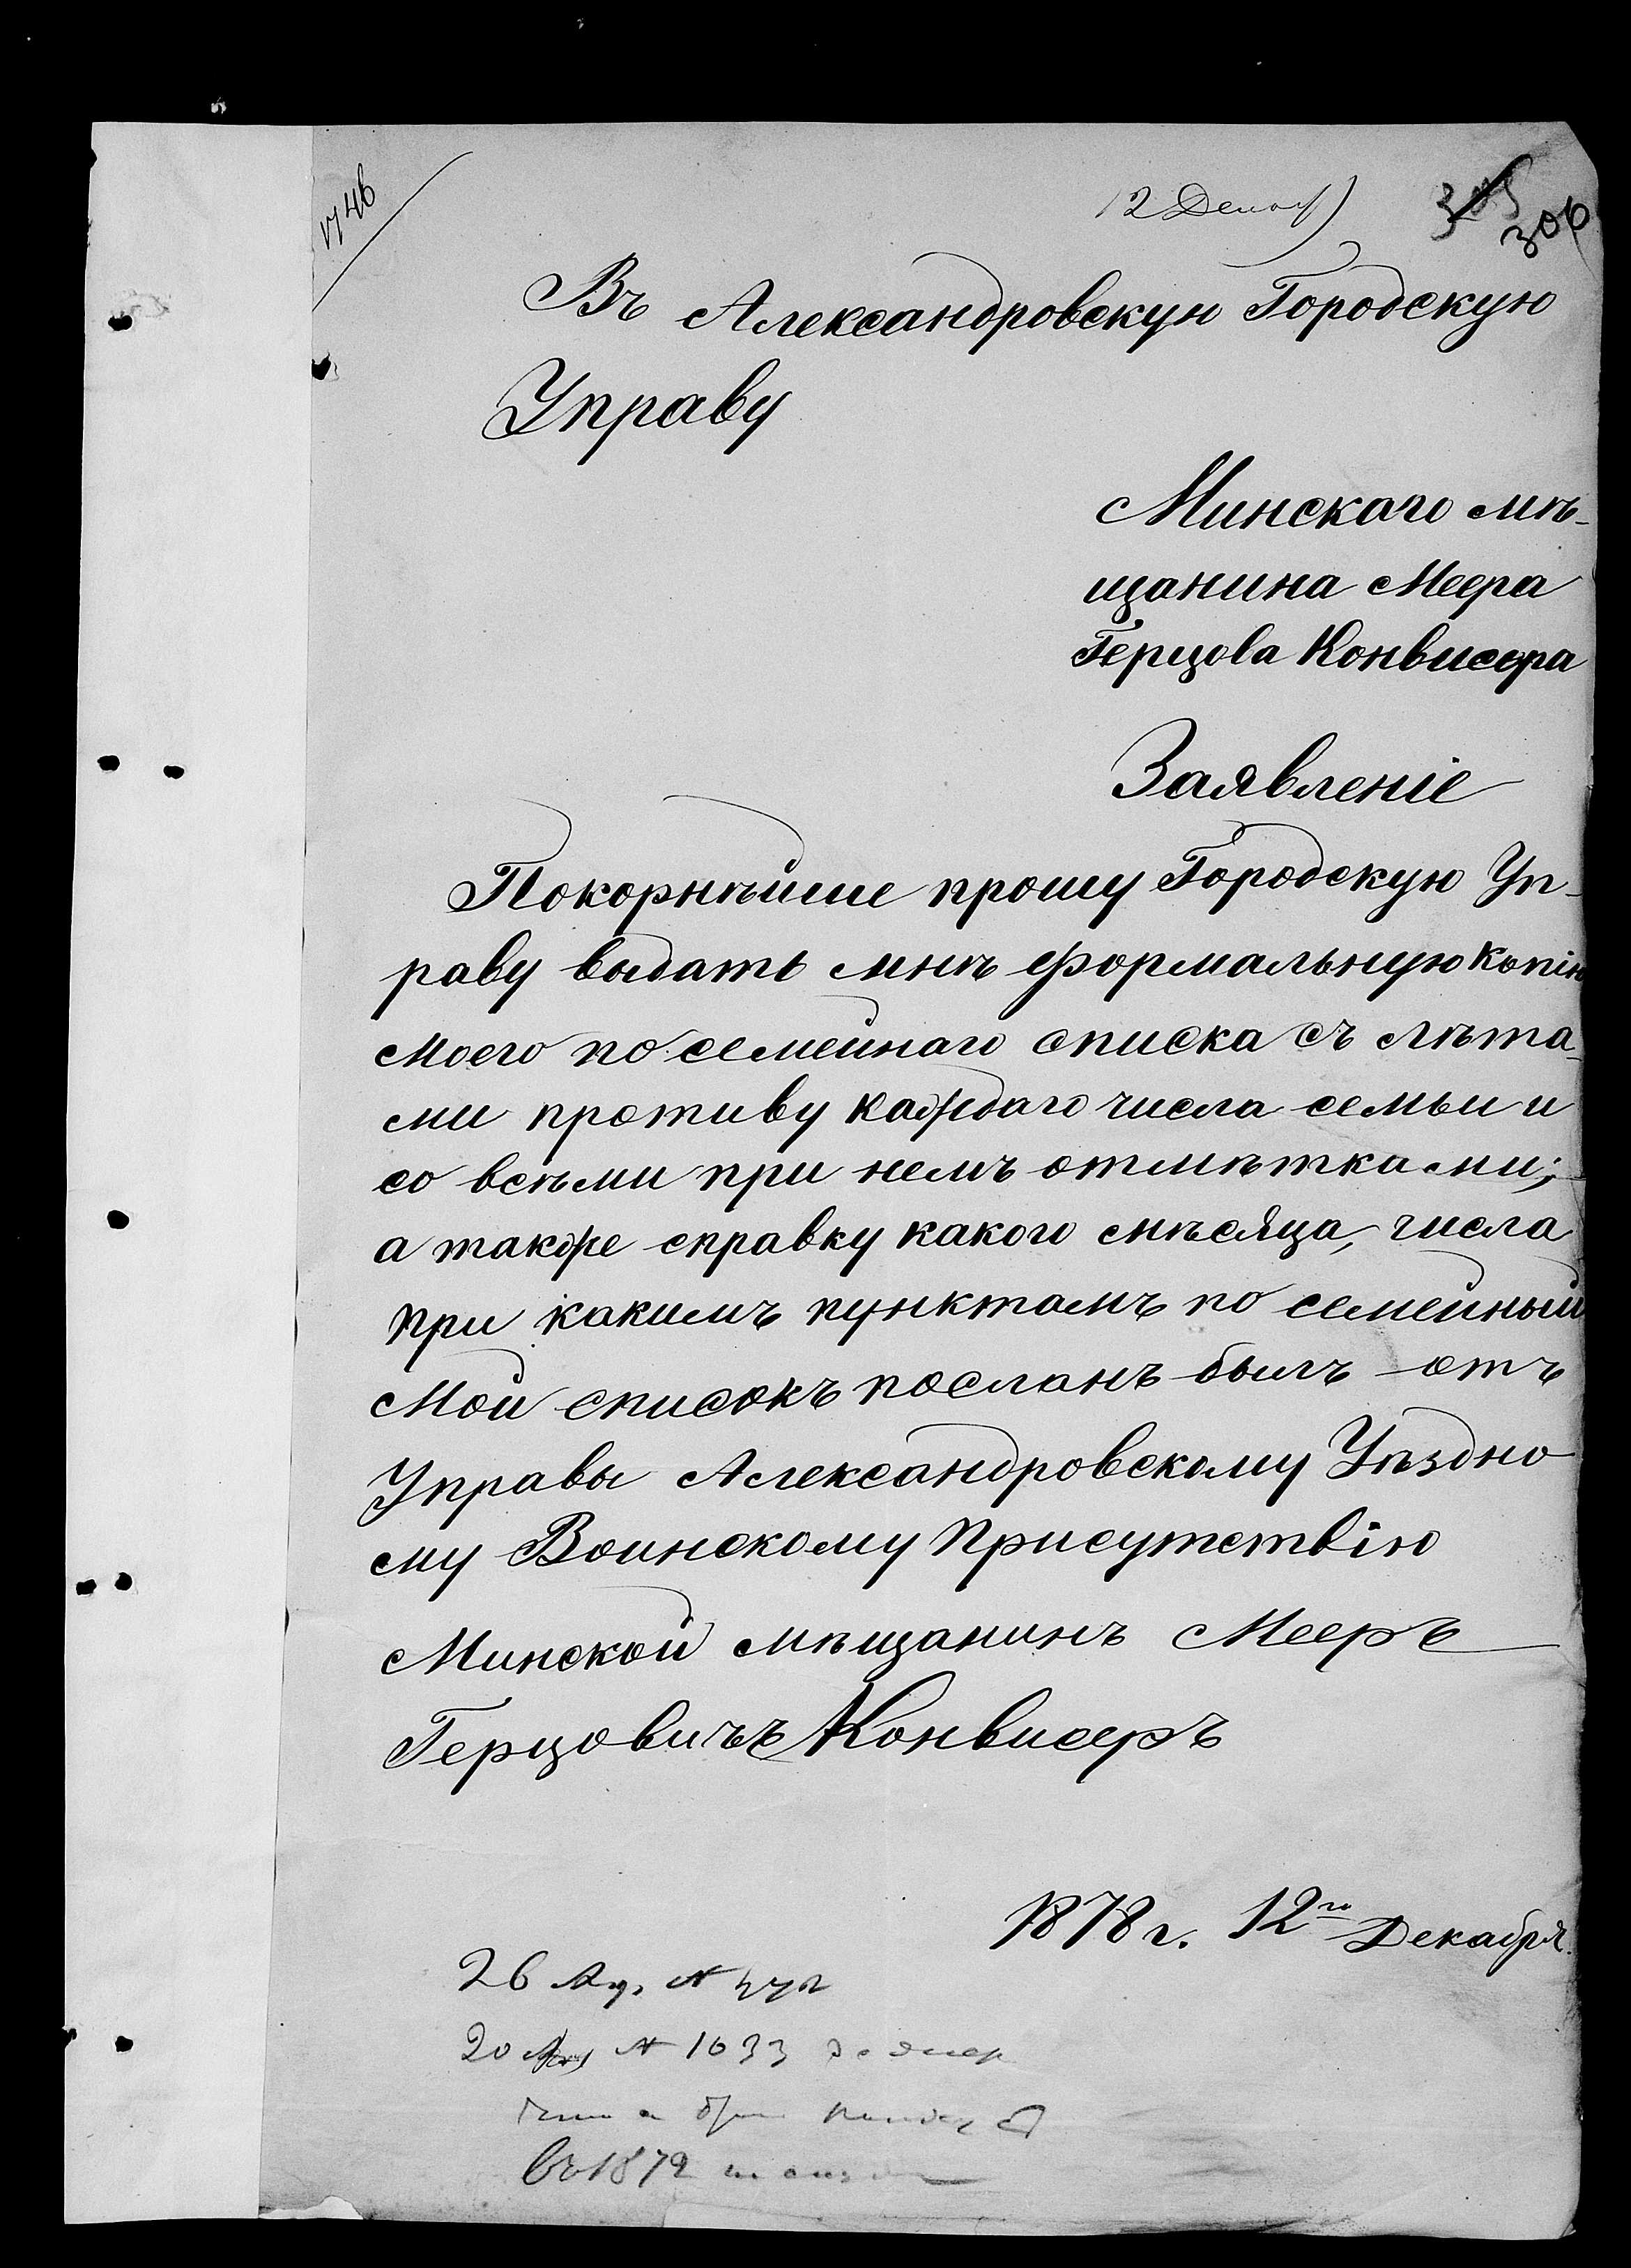 1746
12 Декаб
305
306
Въ Александровскую Городскую
Управу
Минскаго мѣ-
щанина Меера
Герцова Конвисера
Заявленіе
Покорнѣйше прошу Городскую Уп-
раву выдать мнѣ формальную копію
моего по семейнаго списка съ лѣта-
ми противу каждаго числа семьи и
со всѣми при немъ отмѣтками;
а также справку какого мѣсяца, числа
при какимъ пунктамъ по семейный
мой списокъ посланъ былъ отъ
Управы Александровскому Уѣздно
му Воинскому Присутствію
Минской мѣщанинъ Мееръ
Герцовичъ Конвисеръ
1878 г. 12го Декабря.
26 №
20 № 1633
въ 1872